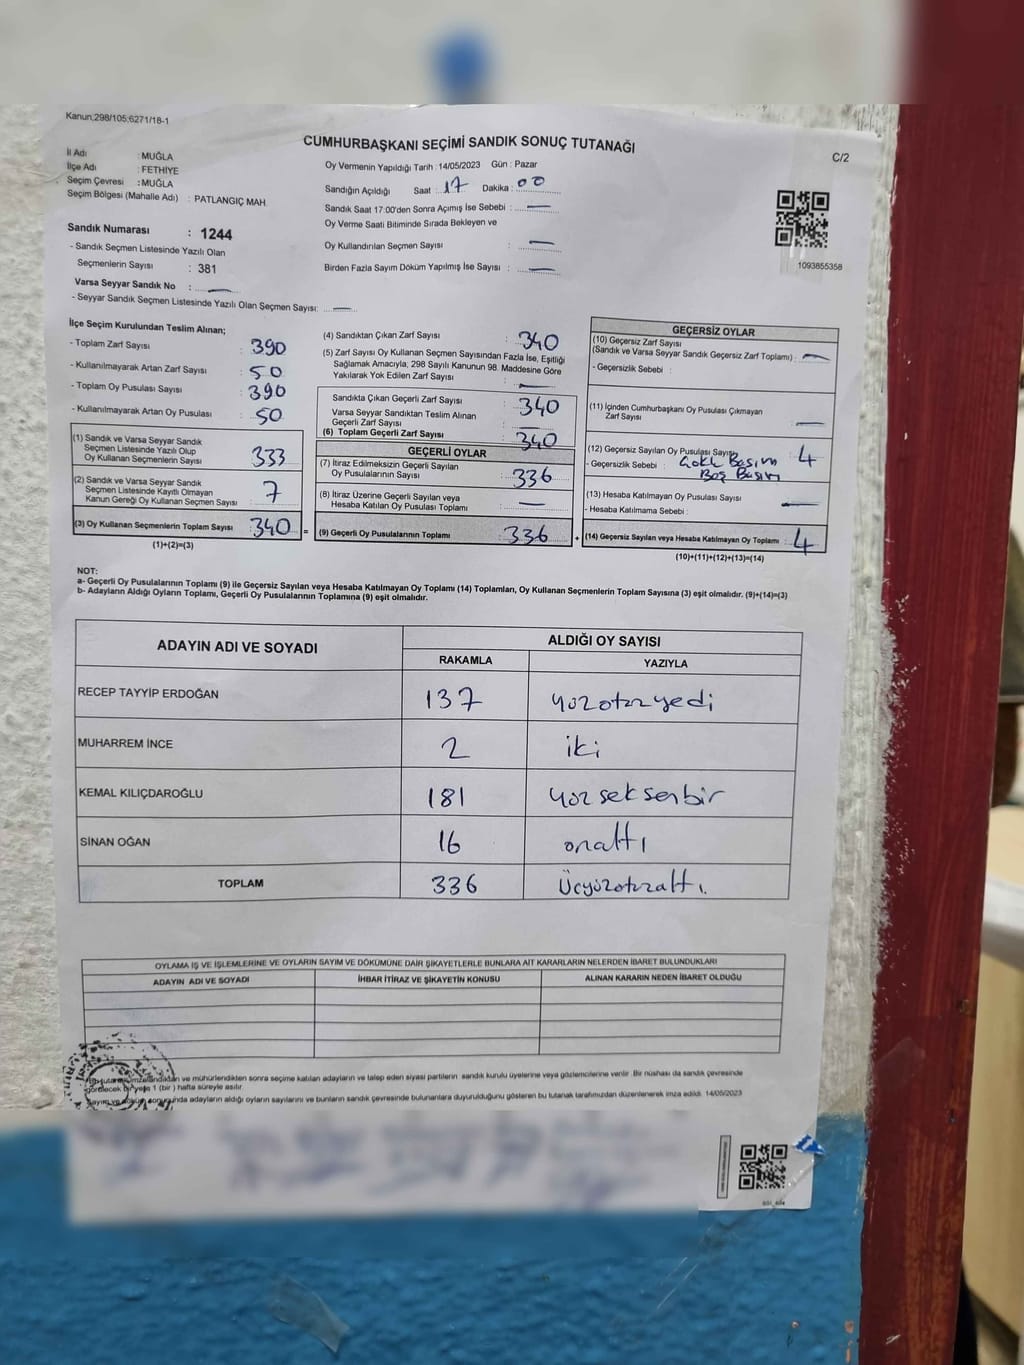 Kanun;298/105;6271/18-1
CUMHURBAŞKANI SEÇİMİ SANDIK SONUÇ TUTANAĞI
C/2
İl Adı : MUĞLA
İlçe Adı : FETHİYE
Seçim Çevresi : MUĞLA
Seçim Bölgesi (Mahalle Adı) : PATLANGIÇ MAH.
Oy Vermenin Yapıldığı Tarih : 14/05/2023 Gün : Pazar
Sandığın Açıldığı Saat : 17 Dakika : 00
Sandık Saat 17.00'den Sonra Açımış İse Sebebi : —
Oy Verme Saati Bitiminde Sırada Bekleyen ve
Oy Kullandırılan Seçmen Sayısı : —
Birden Fazla Sayım Döküm Yapılmış İse Sayısı : —
1093855358
Sandık Numarası : 1244
- Sandık Seçmen Listesinde Yazılı Olan
Seçmenlerin Sayısı : 381
Varsa Seyyar Sandık No : —
- Seyyar Sandık Seçmen Listesinde Yazılı Olan Seçmen Sayısı: —
İlçe Seçim Kurulundan Teslim Alınan;
- Toplam Zarf Sayısı : 390
- Kullanılmayarak Artan Zarf Sayısı : 50
- Toplam Oy Pusulası Sayısı : 390
- Kullanılmayarak Artan Oy Pusulası : 50
(1) Sandık ve Varsa Seyyar Sandık
Seçmen Listesinde Yazılı Olup
Oy Kullanan Seçmenlerin Sayısı : 333
(2) Sandık ve Varsa Seyyar Sandık
Seçmen Listesinde Kayıtlı Olmayan
Kanun Gereği Oy Kullanan Seçmen Sayısı : 7
(3) Oy Kullanan Seçmenlerin Toplam Sayısı : 340 =
(1)+(2)=(3)
(4) Sandıktan Çıkan Zarf Sayısı : 340
(5) Zarf Sayısı Oy Kullanan Seçmen Sayısından Fazla İse, Eşitliği
Sağlamak Amacıyla; 298 Sayılı Kanunun 98. Maddesine Göre
Yakılarak Yok Edilen Zarf Sayısı : —
Sandıkta Çıkan Geçerli Zarf Sayısı : 340
Varsa Seyyar Sandıktan Teslim Alınan
Geçerli Zarf Sayısı : —
(6) Toplam Geçerli Zarf Sayısı : 340
GEÇERLİ OYLAR
(7) İtiraz Edilmeksizin Geçerli Sayılan
Oy Pusulalarının Sayısı : 336
(8) İtiraz Üzerine Geçerli Sayılan veya
Hesaba Katılan Oy Pusulası Toplamı : —
(9) Geçerli Oy Pusulalarının Toplamı : 336 +
GEÇERSİZ OYLAR
(10) Geçersiz Zarf Sayısı
(Sandık ve Varsa Seyyar Sandık Geçersiz Zarf Toplamı) : —
- Geçersizlik Sebebi :
(11) İçinden Cumhurbaşkanı Oy Pusulası Çıkmayan
Zarf Sayısı : —
(12) Geçersiz Sayılan Oy Pusulası Sayısı : 4
- Geçersizlik Sebebi : Basım
Boş Basım
(13) Hesaba Katılmayan Oy Pusulası Sayısı : —
- Hesaba Katılmama Sebebi :
(14) Geçersiz Sayılan veya Hesaba Katılmayan Oy Toplamı : 4
(10)+(11)+(12)+(13)=(14)
NOT:
a- Geçerli Oy Pusulalarının Toplamı (9) ile Geçersiz Sayılan veya Hesaba Katılmayan Oy Toplamı (14) Toplamları, Oy Kullanan Seçmenlerin Toplam Sayısına (3) eşit olmalıdır. (9)+(14)=(3)
b- Adayların Aldığı Oyların Toplamı, Geçerli Oy Pusulalarının Toplamına (9) eşit olmalıdır.
ADAYIN ADI VE SOYADI ALDIĞI OY SAYISI
RAKAMLA YAZIYLA
RECEP TAYYİP ERDOĞAN 137 yüzotuzyedi
MUHARREM İNCE 2 iki
KEMAL KILIÇDAROĞLU 181 yüzseksenbir
SİNAN OĞAN 16 onaltı
TOPLAM 336 Üçyüzotuzaltı.
OYLAMA İŞ VE İŞLEMLERİNE VE OYLARIN SAYIM VE DÖKÜMÜNE DAİR ŞİKAYETLERLE BUNLARA AİT KARARLARIN NELERDEN İBARET BULUNDUKLARI
ADAYIN ADI VE SOYADI İHBAR İTİRAZ VE ŞİKAYETİN KONUSU ALINAN KARARIN NEDEN İBARET OLDUĞU
mühürlendikten sonra seçime katılan adayların ve talep eden siyasi partilerin sandık kurulu üyelerine veya gözlemcilerine verilir. Bir nüshası da sandık çevresinde
görülecek bir yere 1 (bir) hafta süreyle asılır.
Sayım ve döküm sonucunda adayların aldığı oyların sayılarını ve bunların sandık çevresinde bulunanlara duyurulduğunu gösteren bu tutanak tarafımızdan düzenlenerek imza edildi. 14/05/2023